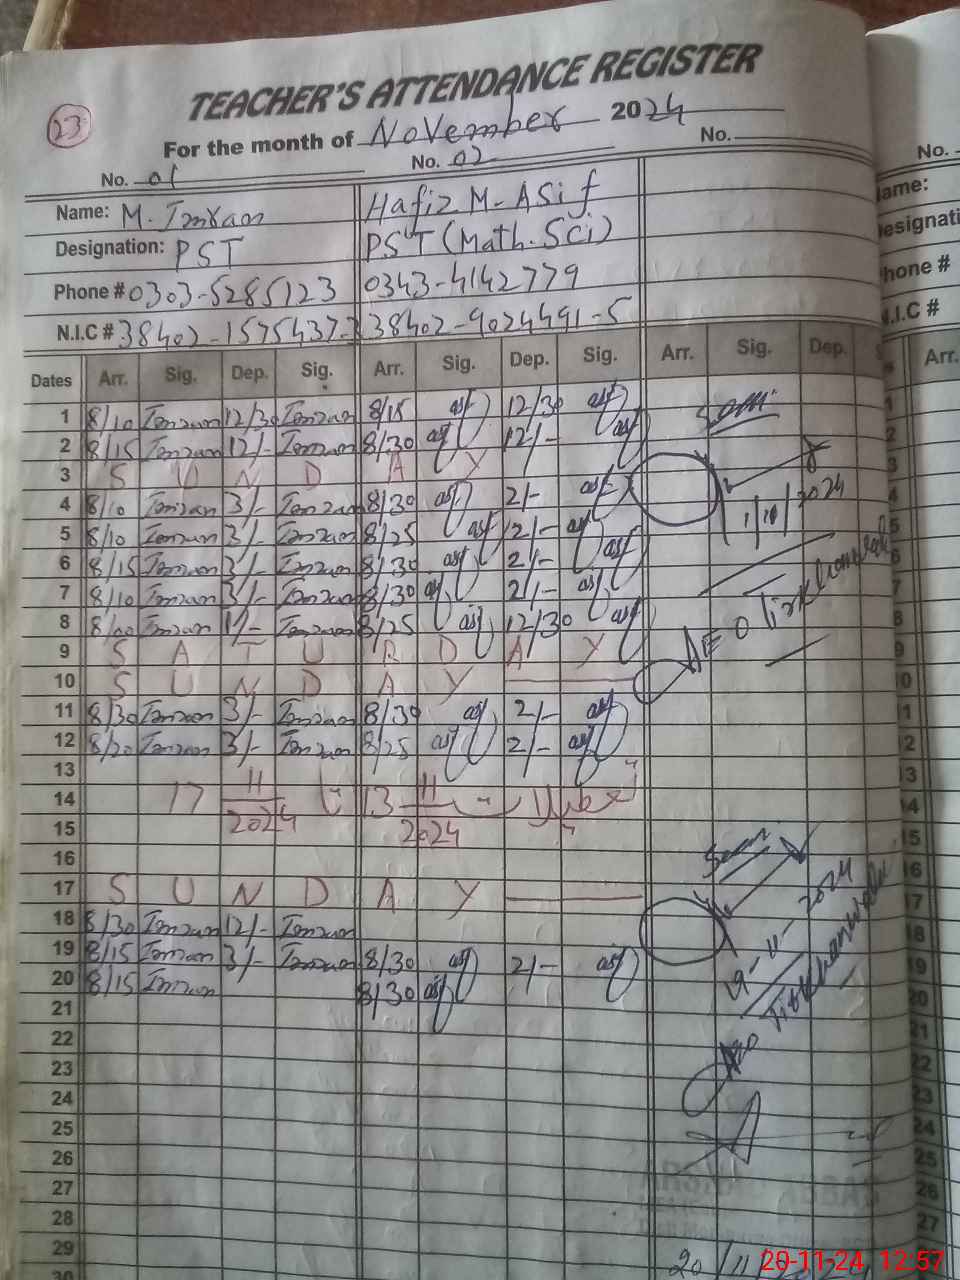 23
TEACHER'S ATTENDANCE REGISTER
For the month of November 2024
No. 01 No. 02 No.
Name: M. Imran Hafiz M. ASif
Designation: PST PST (Math. Sci)
Phone # 0303-5285123 0343-4142779
N.I.C # 38402-1575437-3 38402-9024491-5
Dates Arr. Sig. Dep. Sig. Arr. Sig. Dep. Sig. Arr. Sig. Dep.
1 8/10 Imran 12/30 Imran 8/15 asf 12/30 asf
2 8/15 Imran 12/- Imran 8/30 asf 12/- asf
3 S U N D A Y
4 8/10 Imran 3/- Imran 8/30 asf 2/- asf
5 8/10 Imran 3/- Imran 8/25 asf 2/- asf
6 8/15 Imran 3/- Imran 8/30 asf 2/- asf
7 8/10 Imran 3/- Imran 8/30 asf 2/- asf
8 8/00 Imran 1/- Imran 8/25 asf 12/30 asf
9 S A T U R D A Y
10 S U N D A Y
11 8/30 Imran 3/- Imran 8/30 asf 2/- asf
12 8/20 Imran 3/- Imran 8/25 asf 2/- asf
13
14 17 11/2024 تا 13 11/2024
15
16
17 S U N D A Y
18 8/30 Imran 12/- Imran
19 8/15 Imran 3/- Imran 8/30 asf 2/- asf
20 8/15 Imran 8/30 asf
21
22
23
24
25
26
27
28
29
30
Seen
AEO
Seen
AEO
20/11
No.
Name:
Designati
Phone #
N.I.C #
Arr.
20-11-24 12:57